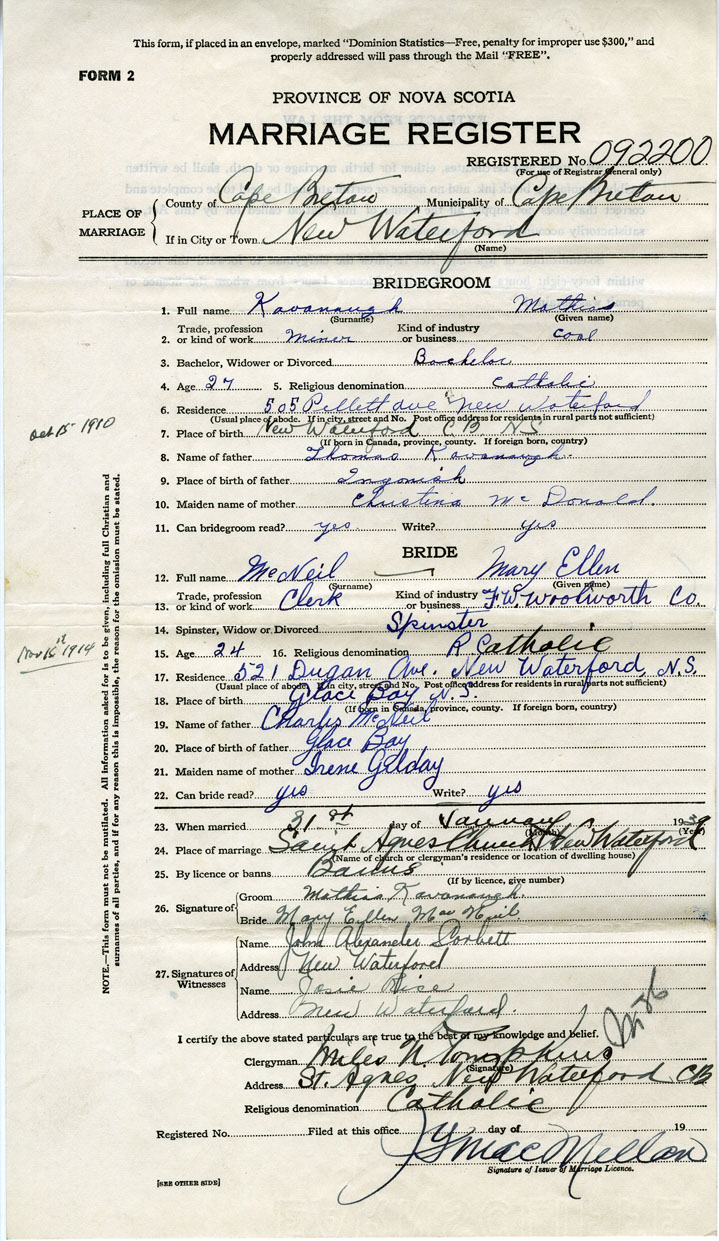 This form, if placed in an envelope, marked "Dominion Statistics—Free, penalty for improper use $300," and
properly addressed will pass through the Mail "FREE".
FORM 2
PROVINCE OF NOVA SCOTIA
MARRIAGE REGISTER
REGISTERED No. 092200
(For use of Registrar General only)
PLACE OF MARRIAGE
County of Cape Breton Municipality of Cape Breton
If in City or Town New Waterford
(Name)
BRIDEGROOM
1. Full name Kavanaugh Mathias
(Surname) (Given name)
2. Trade, profession or kind of work Miner Kind of industry or business coal
3. Bachelor, Widower or Divorced Bachelor
4. Age 27 5. Religious denomination Catholic
6. Residence 505 Pellett ave New Waterford
(Usual place of abode. If in city, street and No. Post office address for residents in rural parts not sufficient)
oct 15 1910
7. Place of birth New Waterford C.B. N.S.
(If born in Canada, province, county. If foreign born, country)
8. Name of father Thomas Kavanaugh.
9. Place of birth of father Ingonish
10. Maiden name of mother Christina McDonald.
11. Can bridegroom read? yes Write? yes
NOTE.—This form must not be mutilated. All information asked for is to be given, including full Christian and
surnames of all parties, and if for any reason this is impossible, the reason for the omission must be stated.
BRIDE
12. Full name McNeil Mary Ellen
(Surname) (Given name)
13. Trade, profession or kind of work Clerk Kind of industry or business F.W. Woolworth Co.
14. Spinster, Widow or Divorced Spinster
15. Age 24 16. Religious denomination R Catholic
Nov 15 1914
17. Residence 521 Dugan Ave. New Waterford, N.S.
(Usual place of abode. If in city, street and No. Post office address for residents in rural parts not sufficient)
18. Place of birth Glace Bay N.S.
(If born in Canada, province, county. If foreign born, country)
19. Name of father Charles McNeil
20. Place of birth of father Glace Bay
21. Maiden name of mother Irene Gilday
22. Can bride read? yes Write? yes
23. When married 31st day of January 1939
(Month) (Year)
24. Place of marriage Saint Agnes Church New Waterford
(Name of church or clergyman's residence or location of dwelling house)
25. By licence or banns Banns
(If by licence, give number)
26. Signature of
Groom Mathias Kavanaugh.
Bride Mary Ellen MacNeil
27. Signatures of Witnesses
Name John Alexander Corbett
Address New Waterford
Name Josie Rice
Address New Waterford.
I certify the above stated particulars are true to the best of my knowledge and belief.
Clergyman Miles N. Tompkins
(Signature)
Address St. Agnes New Waterford CB
Religious denomination Catholic
Registered No. Filed at this office day of 19
MacMellan
Signature of Issuer of Marriage Licence.
[SEE OTHER SIDE]